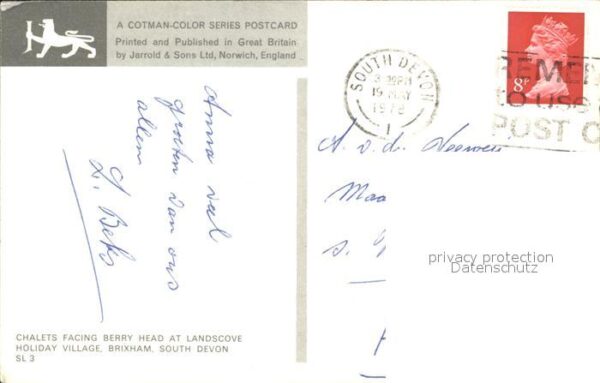 A COTMAN-COLOR SERIES POSTCARD
Printed and Published in Great Britain
by Jarrold & Sons Ltd, Norwich, England
SOUTH DEVON
19 MAY
1978
1
8P
REMEM
TO USE
POST C
Anna veel
groeten van ons
allen
L. Beks
A. v. d.
Maa
s.
privacy protection
Datenschutz
CHALETS FACING BERRY HEAD AT LANDSCOVE
HOLIDAY VILLAGE, BRIXHAM, SOUTH DEVON
SL 3